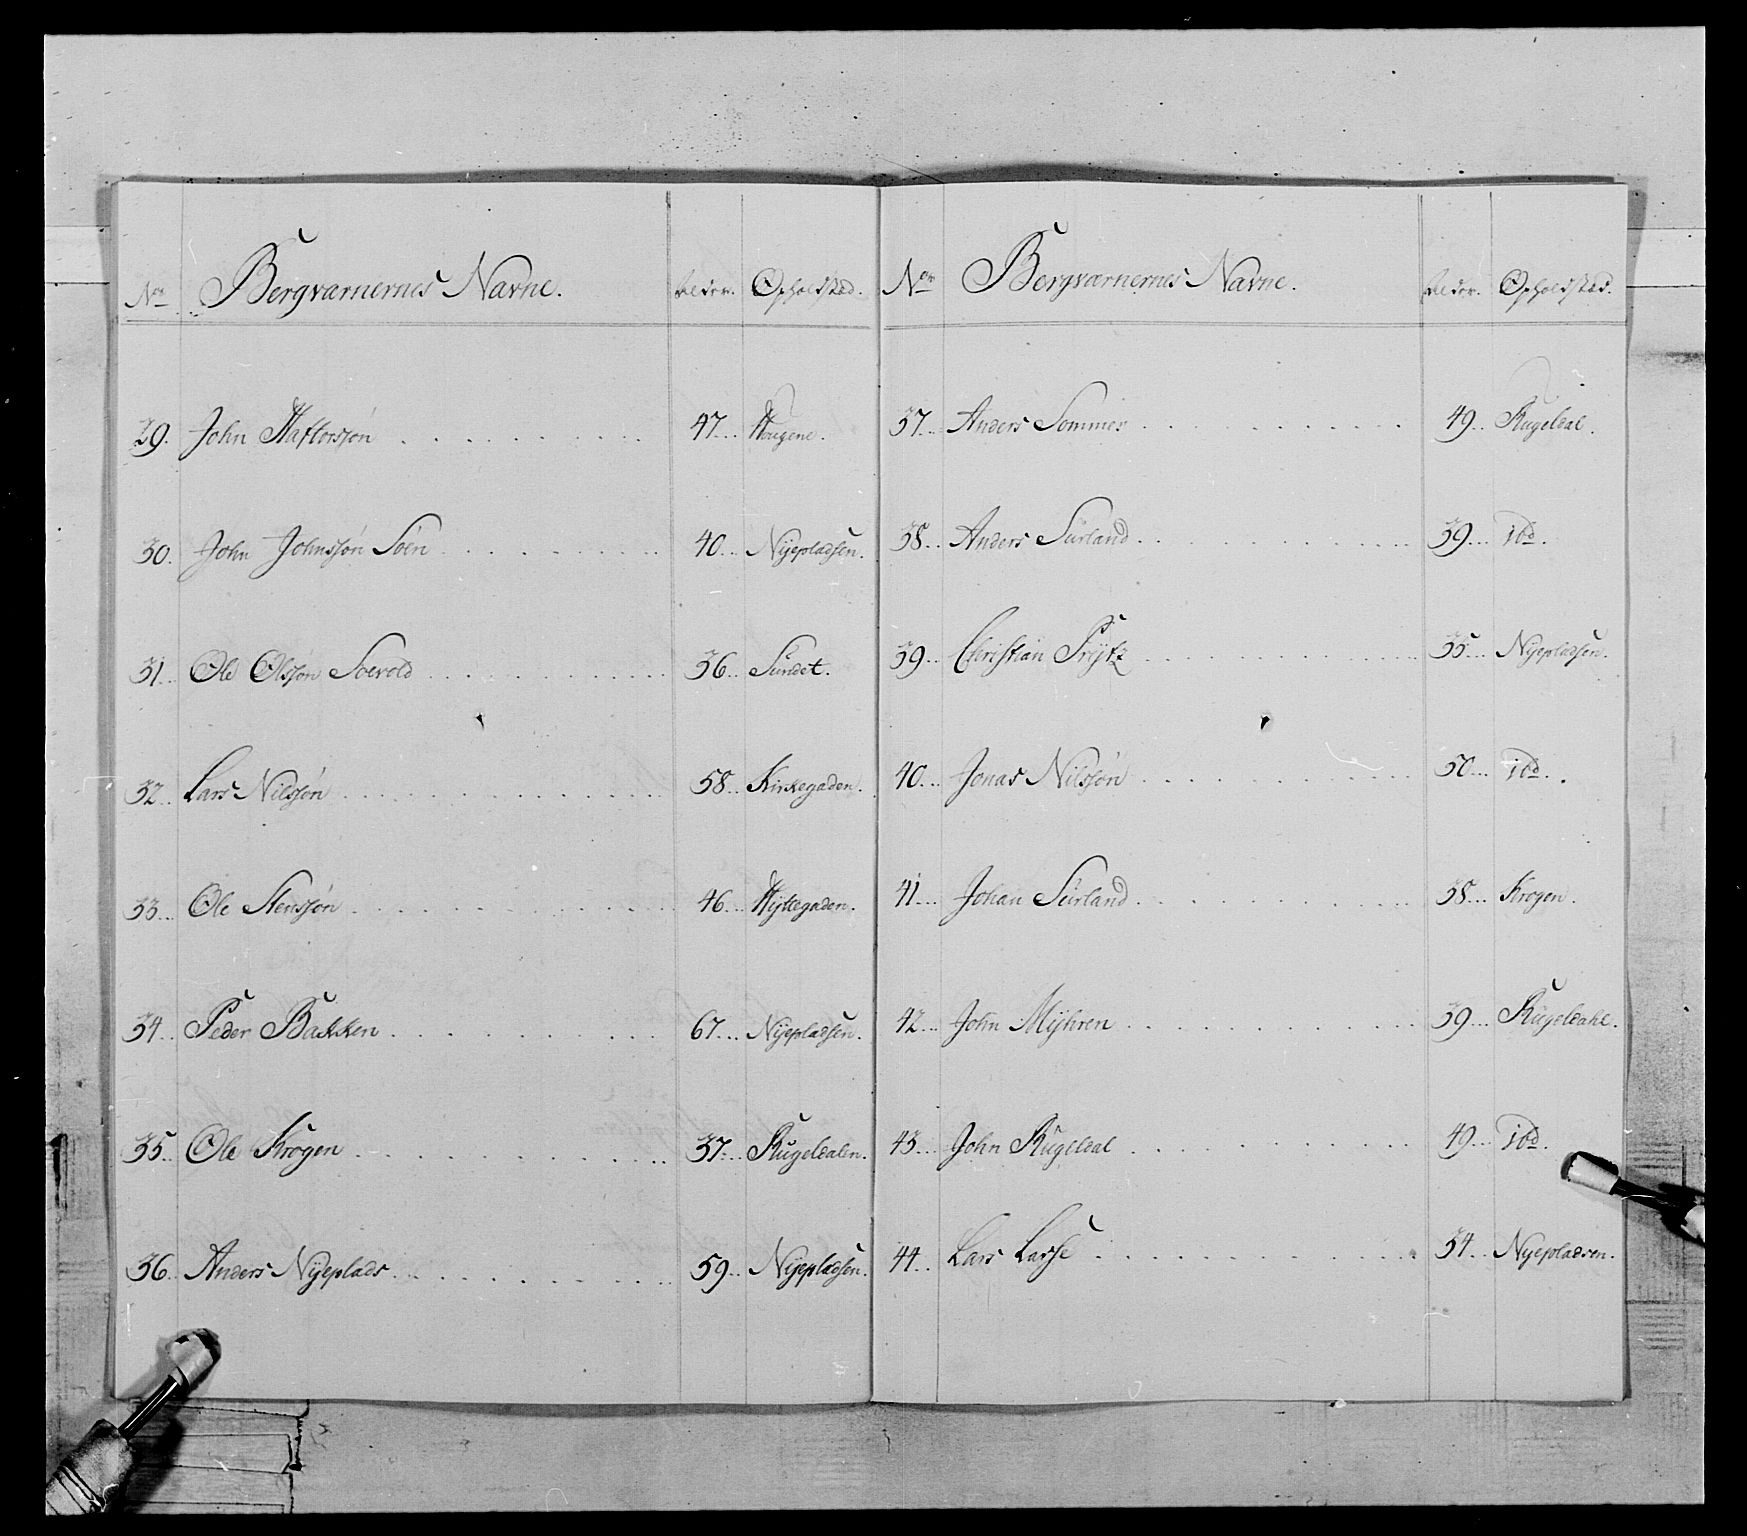 Nor Bergværnernes Navne. Alder. Opholdstæd.
29. John Haftorssøn 47... Hougene.
30. John Johnssøn Soen 40... Nÿepladsen.
31... Ole Olssøn Soevold 36... Sundet.
32... Lars Nilssøn 58... Kirkegaden.
33... Ole Stenssøn 46... Hÿttegaden.
34... Peder Bakken 67... Nÿepladsen.
35... Ole Krogen 37... Kugeldalen.
36... Anders Nÿeplads 59... Nÿepladsen.
Nor Bergværnernes Navne. Alder. Opholdstæd.
37... Anders Sommer 49... Kugeldal.
38... Anders Surland 39... ibd.
39... Christian Prÿtz 35... Nÿepladsen.
40... Jonas Nilssøn 50... ibd.
41... Johan Surland 38... Krogen.
42... John Mÿhren 39... Kugeldahl.
43... John Kugeldal 49... ibd.
44... Lars Lasse 54... Nÿepladsen.